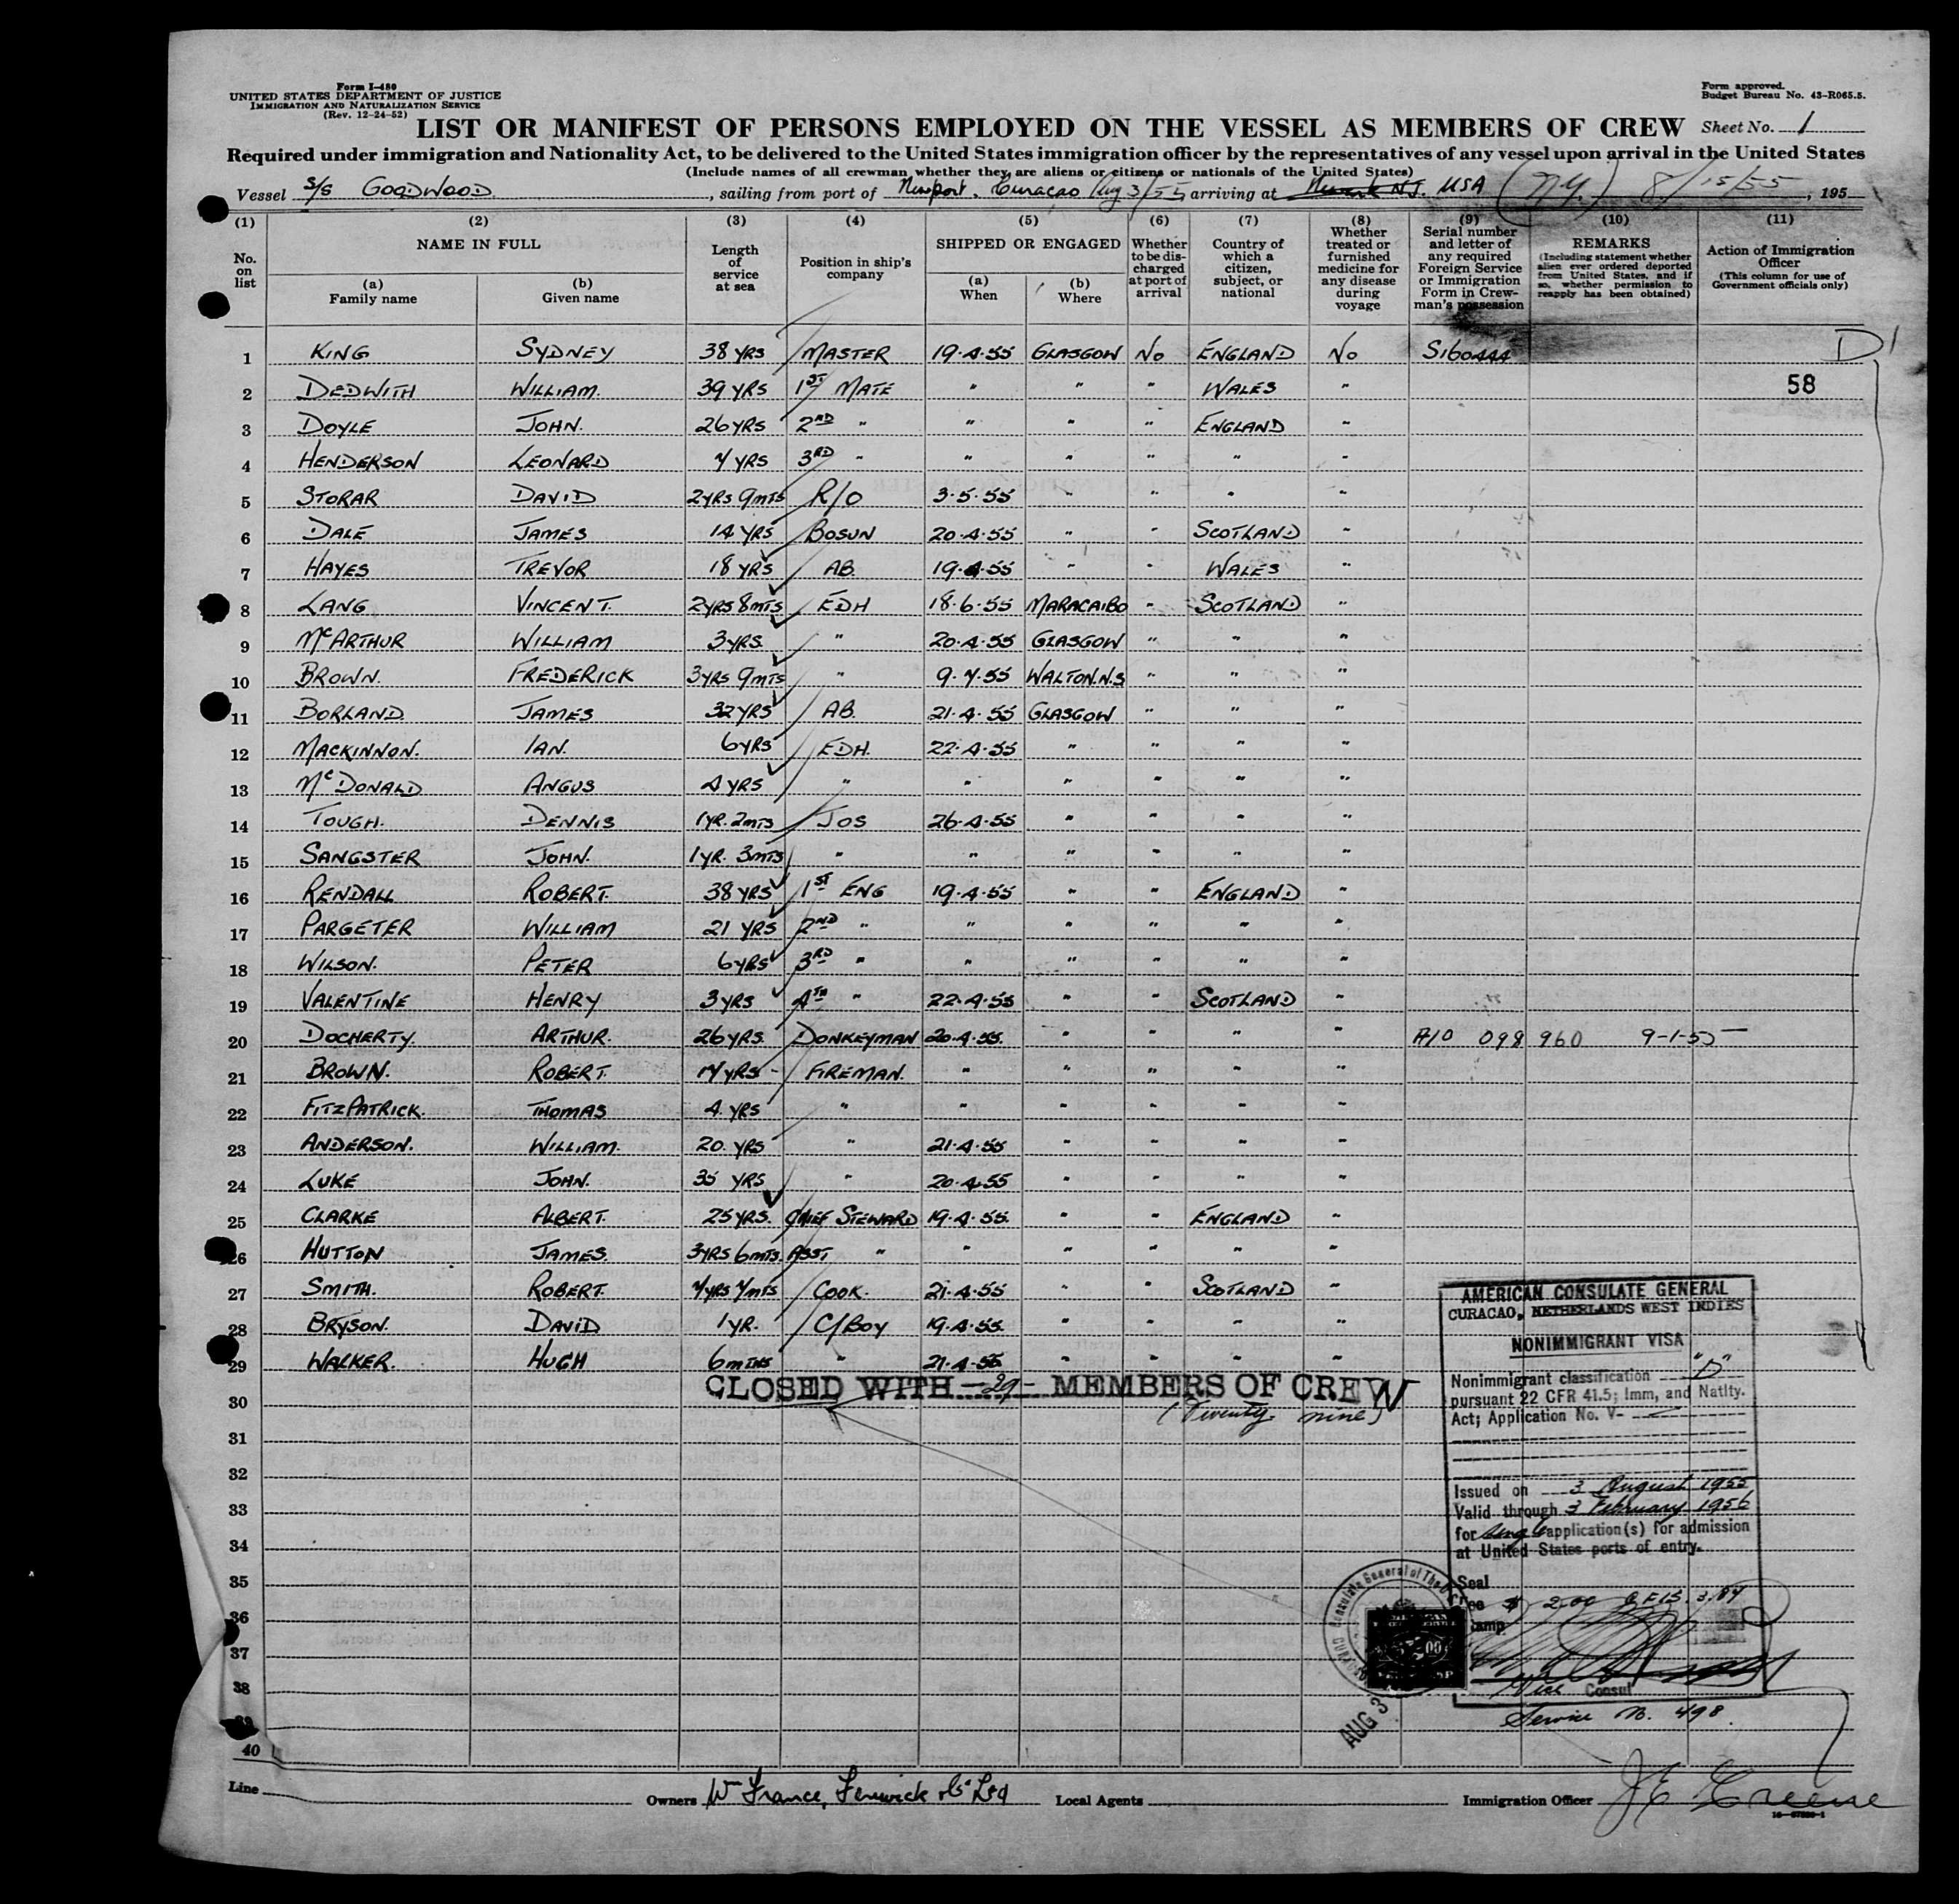 Form I-480
UNITED STATES DEPARTMENT OF JUSTICE
IMMIGRATION AND NATURALIZATION SERVICE
(Rev. 12-24-52)
Form approved.
Budget Bureau No. 43-R065.5.
LIST OR MANIFEST OF PERSONS EMPLOYED ON THE VESSEL AS MEMBERS OF CREW Sheet No. 1
Required under immigration and Nationality Act, to be delivered to the United States immigration officer by the representatives of any vessel upon arrival in the United States
(Include names of all crewman whether they are aliens or citizens or nationals of the United States)
Vessel S/S GOODWOOD, sailing from port of Newport, Curacao Aug 3/55, arriving at Newark N.J. USA (N.Y.) 8/15/55, 195
(1) (2) (3) (4) (5) (6) (7) (8) (9) (10) (11)
No. on list
NAME IN FULL
(a) Family name
(b) Given name
Length of service at sea
Position in ship's company
SHIPPED OR ENGAGED
(a) When
(b) Where
Whether to be discharged at port of arrival
Country of which a citizen, subject, or national
Whether treated or furnished medicine for any disease during voyage
Serial number and letter of any required Foreign Service or Immigration Form in Crewman's possession
REMARKS
(Including statement whether alien ever ordered deported from United States, and if so, whether permission to reapply has been obtained)
Action of Immigration Officer
(This column for use of Government officials only)
1 KING SYDNEY 38 YRS MASTER 19·4·55 GLASGOW No ENGLAND No S160444 D1
2 DEDWITH WILLIAM. 39 YRS 1ST MATE " " " WALES " 58
3 DOYLE JOHN. 26 YRS 2ND " " " " ENGLAND "
4 HENDERSON LEONARD 7 YRS 3RD " " " " " "
5 STORAR DAVID 2YRS 9MTS R/O 3·5·55 " " " "
6 DALE JAMES 14 YRS BOSUN 20·4·55 " " SCOTLAND "
7 HAYES TREVOR 18 YRS AB. 19·4·55 " " WALES "
8 LANG VINCENT. 2YRS 8MTS EDH 18·6·55 MARACAIBO " SCOTLAND "
9 McARTHUR WILLIAM 3YRS. " 20·4·55 GLASGOW " " "
10 BROWN. FREDERICK 3YRS 9MTS " 9·7·55 WALTON.N.S " " "
11 BORLAND JAMES 32 YRS AB. 21·4·55 GLASGOW " " "
12 MACKINNON. IAN. 6YRS EDH. 22·4·55 " " " "
13 McDONALD ANGUS 4 YRS " " " " " "
14 TOUGH. DENNIS 1YR. 2MTS JOS 26·4·55 " " " "
15 SANGSTER JOHN. 1YR. 3MTS " " " " " "
16 RENDALL ROBERT. 38 YRS 1ST ENG 19·4·55 " " ENGLAND "
17 PARGETER WILLIAM 21 YRS 2ND " " " " " "
18 WILSON. PETER 6YRS 3RD " " " " " "
19 VALENTINE HENRY 3 YRS 4TH " 22·4·55 " " SCOTLAND "
20 DOCHERTY. ARTHUR. 26 YRS. DONKEYMAN 20·4·55. " " " " A10 098 960 9-1-55
21 BROWN. ROBERT. 17 YRS - FIREMAN. " " " " "
22 FITZPATRICK. THOMAS 4 YRS " " " " " "
23 ANDERSON. WILLIAM. 20. YRS " 21·4·55 " " " "
24 LUKE JOHN. 35 YRS " 20·4·55 " " " "
25 CLARKE ALBERT. 25 YRS. CHIEF STEWARD 19·4·55. " " ENGLAND "
26 HUTTON JAMES. 3YRS 6MTS. ASST " " " " " "
27 SMITH. ROBERT. 7YRS 7MTS COOK. 21·4·55 " " SCOTLAND "
28 BRYSON. DAVID 1YR. C/BOY 19·4·55. " " " "
29 WALKER. HUGH 6MTHS " 21·4·55 " " " "
CLOSED WITH -29- MEMBERS OF CREW
(Twenty nine)
30
31
32
33
34
35
36
37
38
39
40
AMERICAN CONSULATE GENERAL
CURACAO, NETHERLANDS WEST INDIES
NONIMMIGRANT VISA
Nonimmigrant classification "D"
pursuant 22 CFR 41.5; Imm, and Natlty.
Act; Application No. V-
Issued on 3 August 1955
Valid through 3 February 1956
for single application(s) for admission
at United States ports of entry.
Seal
Fee $ 2.00
Stamp
Vice Consul
Service No. 498.
AUG 3
Line
Owners Wm France, Fenwick & Co Ltd
Local Agents
Immigration Officer J E Greene